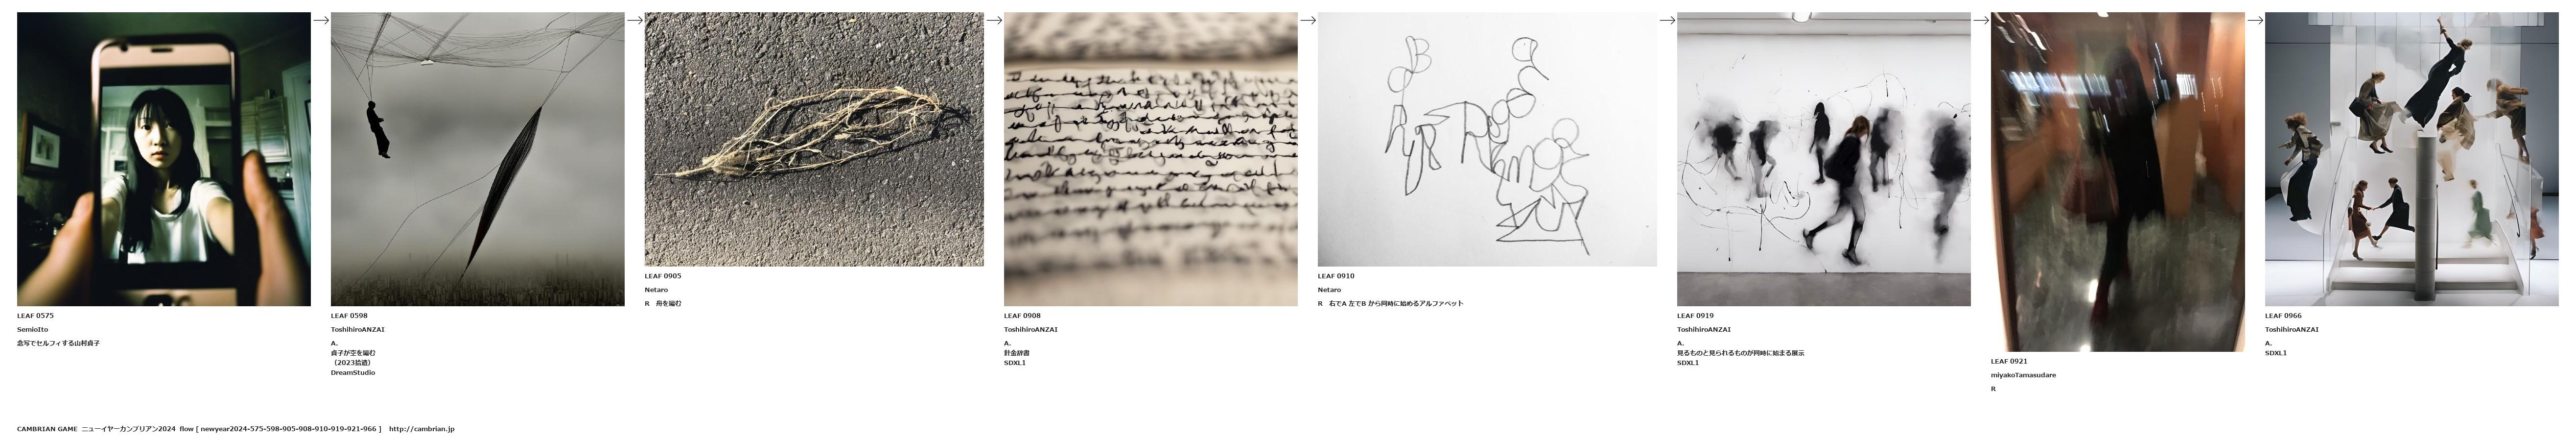 LEAF 0575
SemioIto
念写でセルフィする山村貞子
LEAF 0598
ToshihiroANZAI
A.
貞子が空を編む
（2023拾遺）
DreamStudio
LEAF 0905
Netaro
R　舟を編む
LEAF 0908
ToshihiroANZAI
A.
針金辞書
SDXL1
LEAF 0910
Netaro
R　右でA 左でB から同時に始めるアルファベット
LEAF 0919
ToshihiroANZAI
A.
見るものと見られるものが同時に始まる展示
SDXL1
LEAF 0921
miyakoTamasudare
R
LEAF 0966
ToshihiroANZAI
A.
SDXL1
CAMBRIAN GAME  ニューイヤーカンブリアン2024  flow [ newyear2024-575-598-905-908-910-919-921-966 ]   http://cambrian.jp